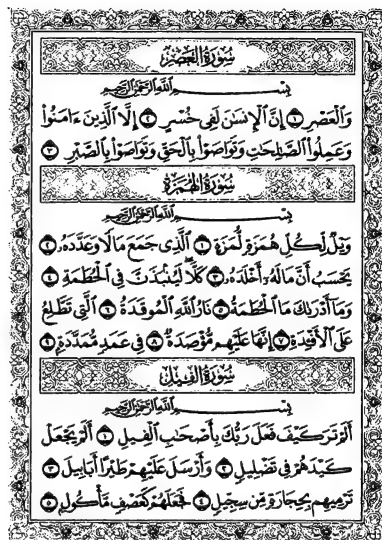 سُورَةُ العَصْرِ
بِسْمِ اللَّهِ الرَّحْمَٰنِ الرَّحِيمِ
وَٱلْعَصْرِ ١ إِنَّ ٱلْإِنسَٰنَ لَفِى خُسْرٍ ٢ إِلَّا ٱلَّذِينَ ءَامَنُوا۟
وَعَمِلُوا۟ ٱلصَّٰلِحَٰتِ وَتَوَاصَوْا۟ بِٱلْحَقِّ وَتَوَاصَوْا۟ بِٱلصَّبْرِ ٣
سُورَةُ الهُمَزَةِ
بِسْمِ اللَّهِ الرَّحْمَٰنِ الرَّحِيمِ
وَيْلٌ لِّكُلِّ هُمَزَةٍ لُّمَزَةٍ ١ ٱلَّذِى جَمَعَ مَالًا وَعَدَّدَهُۥ ٢
يَحْسَبُ أَنَّ مَالَهُۥٓ أَخْلَدَهُۥ ٣ كَلَّا ۖ لَيُنۢبَذَنَّ فِى ٱلْحُطَمَةِ ٤
وَمَآ أَدْرَىٰكَ مَا ٱلْحُطَمَةُ ٥ نَارُ ٱللَّهِ ٱلْمُوقَدَةُ ٦ ٱلَّتِى تَطَّلِعُ
عَلَى ٱلْأَفْـِٔدَةِ ٧ إِنَّهَا عَلَيْهِم مُّؤْصَدَةٌ ٨ فِى عَمَدٍ مُّمَدَّدَةٍۭ ٩
سُورَةُ الفِيلِ
بِسْمِ اللَّهِ الرَّحْمَٰنِ الرَّحِيمِ
أَلَمْ تَرَ كَيْفَ فَعَلَ رَبُّكَ بِأَصْحَٰبِ ٱلْفِيلِ ١ أَلَمْ يَجْعَلْ
كَيْدَهُمْ فِى تَضْلِيلٍ ٢ وَأَرْسَلَ عَلَيْهِمْ طَيْرًا أَبَابِيلَ ٣
تَرْمِيهِم بِحِجَارَةٍ مِّن سِجِّيلٍ ٤ فَجَعَلَهُمْ كَعَصْفٍ مَّأْكُولٍۭ ٥